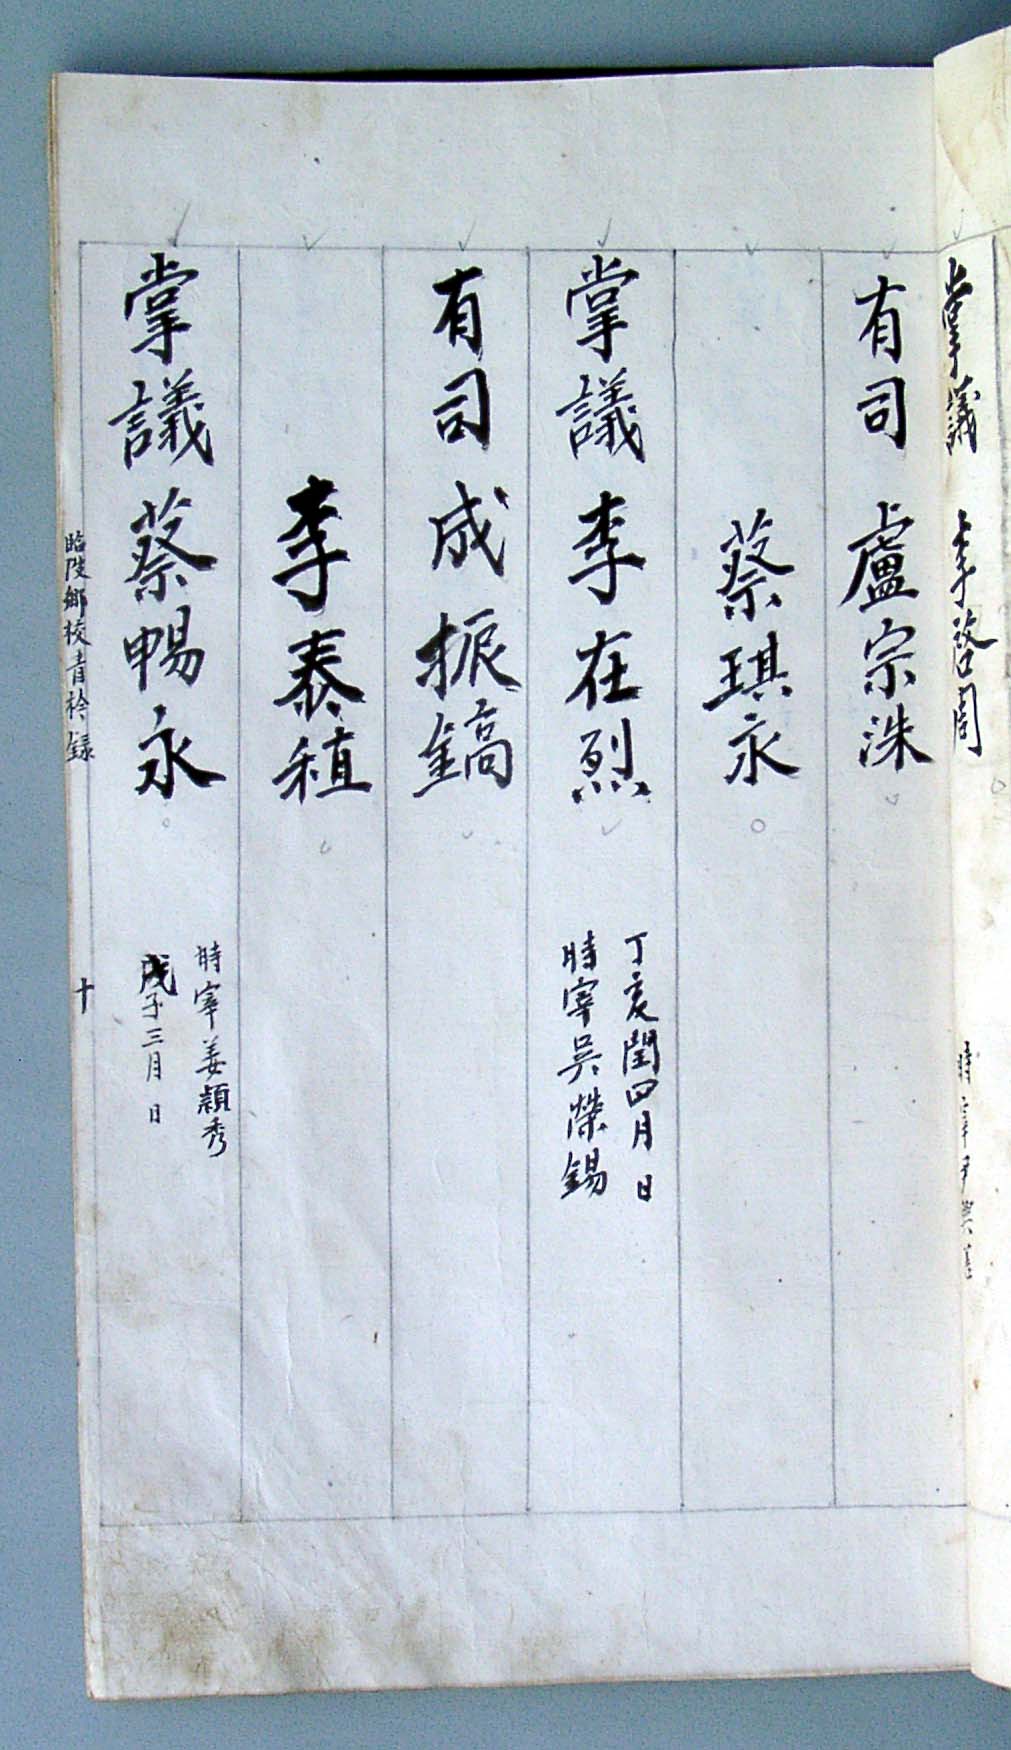 掌議 李啓周
時宰尹
有司 盧宗洙
蔡琪永
掌議 李在烈
丁亥閏四月 日
時宰吳榮錫
有司 成振鎬
李泰稙
掌議 蔡暢永
時宰姜穎秀
戊子三月 日
臨陂鄉校青衿錄
十